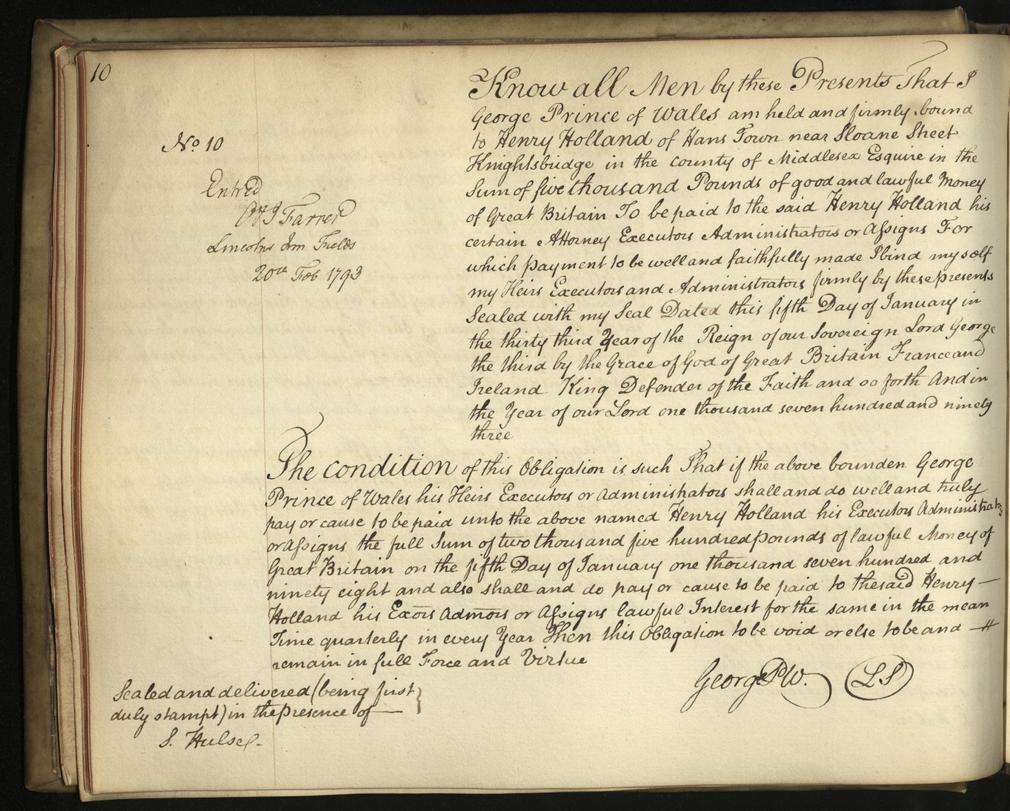 10
No 10
Entred
Lincolns Inn Fields
20th Feb 1793
Know all Men by these Presents That I
George Prince of Wales am held and firmly bound
to Henry Holland of Hans Town near Sloane Street
Knightsbridge in the county of Middlesex Esquire in the
Sum of five thousand Pounds of good and lawful Money
of Great Britain To be paid to the said Henry Holland his
certain Attorney Executors Administrators or Assigns For
which payment to be well and faithfully made I bind myself
my Heirs Executors and Administrators firmly by these presents
Sealed with my Seal Dated this fifth Day of January in
the thirty third Year of the Reign of our Sovereign Lord George
the third by the Grace of God of Great Britain France and
Ireland King Defender of the Faith and so forth And in
the Year of our Lord one thousand seven hundred and ninety
three
The condition of this Obligation is such That if the above bounden George
Prince of Wales his Heirs Executors or Administrators shall and do well and truly
pay or cause to be paid unto the above named Henry Holland his Executors Administrators
or Assigns the full Sum of two thousand five hundred pounds of lawful Money of
Great Britain on the fifth Day of January one thousand seven hundred and
ninety eight and also shall and do pay or cause to be paid to the said Henry —
Holland his Exors Admors or Assigns lawful Interest for the same in the mean
Time quarterly in every Year Then this Obligation to be void or else to be and —
remain in full Force and Virtue
George P W. LS
Sealed and delivered (being first
duly stampt) in the presence of —
S. Hulse.